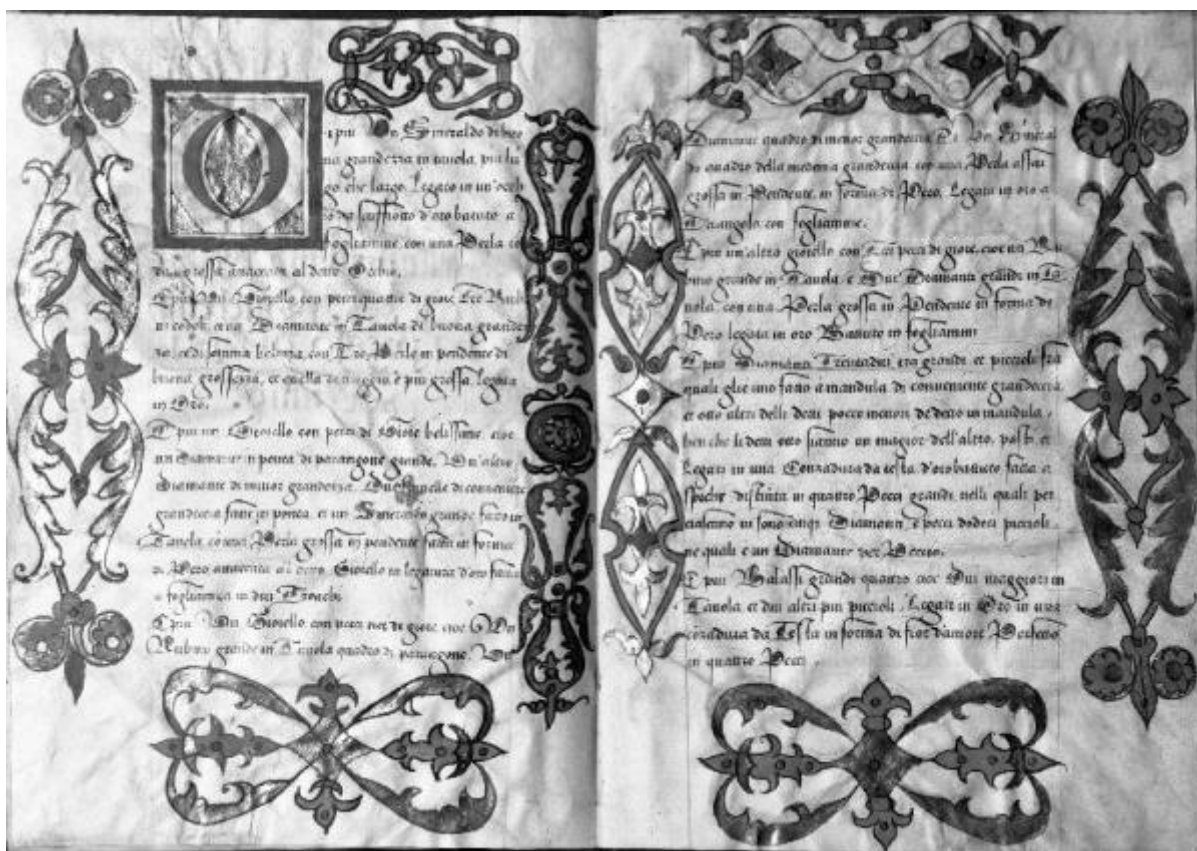 O
i piu Un Smeraldo di bo
na grandezza in tavola, piu lu
go che largo, Legato in un'
d'oro batuto a
fogliamine con una Perla
al detto
E piu Un Gioiello con pezzi quatre di gioie Tre Rub
et un Diamante in Tavola di buona grande
za, et di somma beleza con Tre Perle in pendente di
buona grossezza, et quella di mezzo è piu grossa legata
in Oro.
E piu un Gioiello con pezzi di Gioie belissime, cioe
un Diamante in ponta di paragone grande. Un'altro
Diamante di minor grandezza. Due di conveniente
grandezza fatte in ponta, et un Smeraldo grande fatto in
Tavola, con una Perla grossa in pendente fatta in forma
di Pero attaccata al detto Gioiello in legatura d'oro fatta
a fogliamina in dui Tronchi
E piu Un Gioiello con pezzi tre di gioie cioe Un
Rubino grande in Tavola quadro di paragone. Un
Diamante quadro di menor grandezza Et Un Smeral
do quadro della medema grandezza con una Perla assai
grossa in Pendente, in forma di Pero, Legati in oro a
Triangolo con fogliamine.
E piu un'altro gioiello con Tre pezzi di gioie, cioe un Ru
bino grande in Tavola, e Due Diamanti grandi in Ta
vola, con una Perla grossa in Pendente in forma di
Pero legata in oro Batuto in fogliamini
E piu Diamanti Trentadui tra grandi et piccioli fra
quali glie uno fatto a mandula di conveniente grandezza
et otto altri delli detti pocco menori de detto in mandula,
ben che li detti otto siano un maggior dell'altro, posti et
Legati in una Conzadura da testa d'oro battuto fatta a
distinta in quattro Pezzi grandi nelli quali per
in sono cinqe Diamanti, e pezzi dodeci piccioli,
ne quali e un Diamante per Pezzo.
E piu Balassi grandi quatro cioe Dui maggiori in
Tavola et dui altri piu piccioli, Legati in Oro in una
conzadura da Testa in forma di fior d'amore Perfetto
in quattro Pezzi.